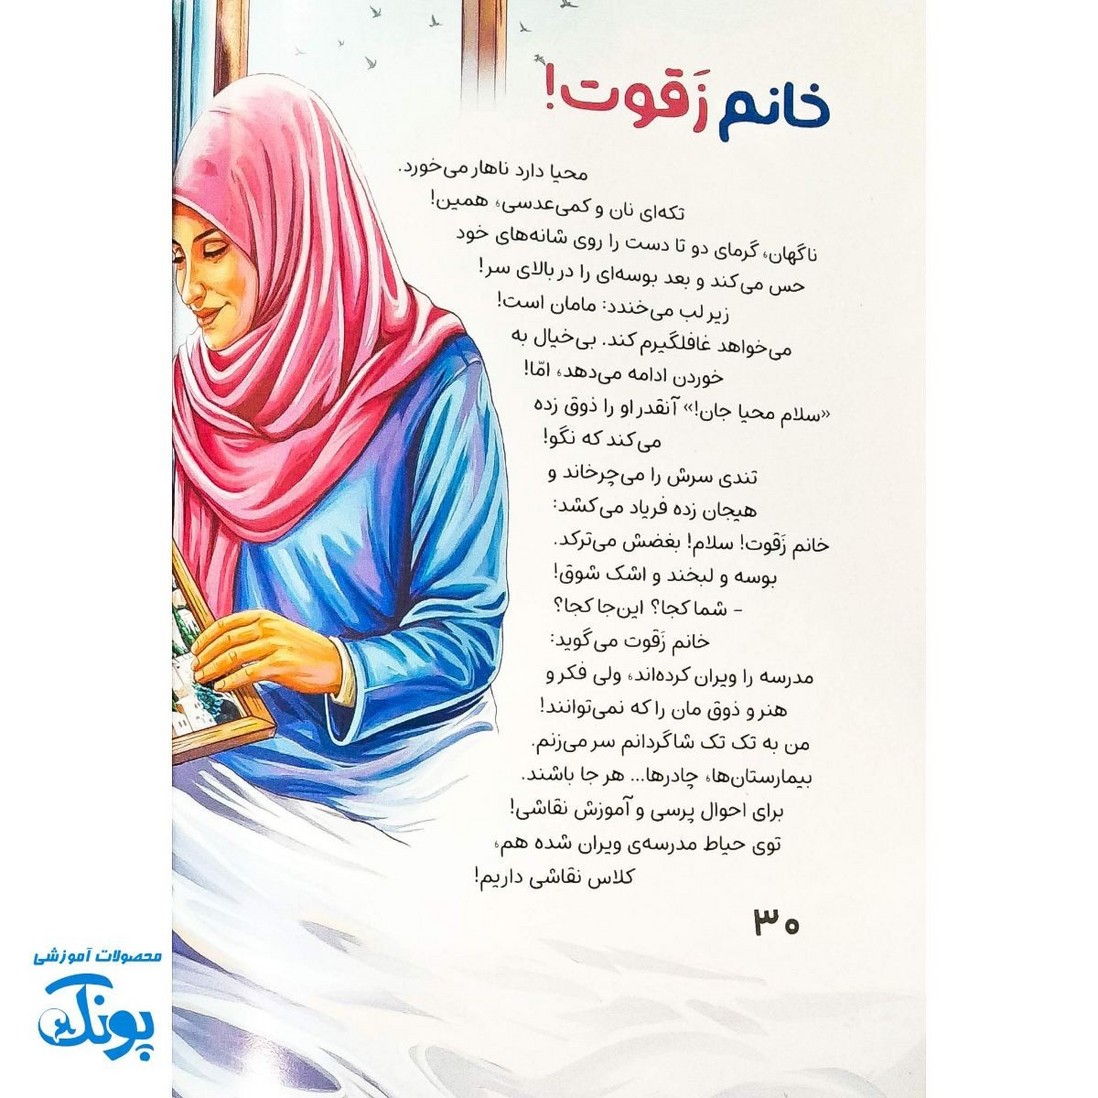 خانم زَقوت!
محیا دارد ناهار می‌خورد.
تکه‌ای نان و کمی‌عدسی، همین!
ناگهان، گرمای دو تا دست را روی شانه‌های خود
حس می‌کند و بعد بوسه‌ای را در بالای سر!
زیر لب می‌خندد: مامان است!
می‌خواهد غافلگیرم کند. بی‌خیال به
خوردن ادامه می‌دهد، امّا!
«سلام محیا جان!» آنقدر او را ذوق زده
می‌کند که نگو!
تندی سرش را می‌چرخاند و
هیجان زده فریاد می‌کشد:
خانم زَقوت! سلام! بغضش می‌ترکد.
بوسه و لبخند و اشک شوق!
- شما کجا؟ این‌جا کجا؟
خانم زَقوت می‌گوید:
مدرسه را ویران کرده‌اند، ولی فکر و
هنر و ذوق مان را که نمی‌توانند!
من به تک تک شاگردانم سر می‌زنم.
بیمارستان‌ها، چادرها... هر جا باشند.
برای احوال پرسی و آموزش نقاشی!
توی حیاط مدرسه‌ی ویران شده هم،
کلاس نقاشی داریم!
۳۰
محصولات آموزشی
پونک